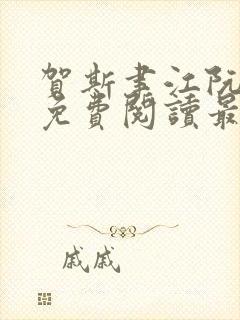 賀斯聿江阮
免費閱讀最
戚戚